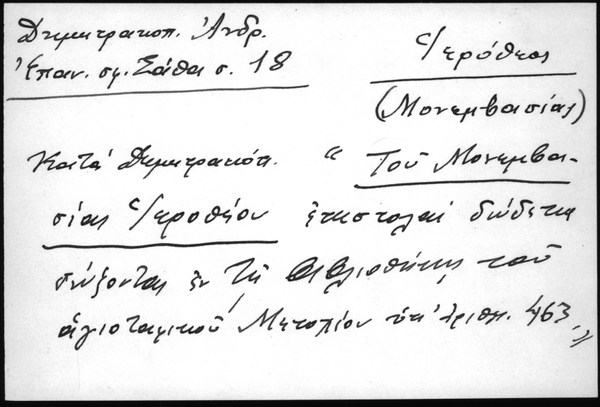 Δημητρακοπ. Ἀνδρ.
Ἐπαν. σφ. Σάθα σ. 18
Ἱερόθεος
(Μονεμβασίας)
Κατά Δημητρακόπ. "Τοῦ Μονεμβα-
σίας Ἱεροθέου ἐπιστολαί δώδεκα
σώζονται ἐν τῇ Βιβλιοθήκῃ τοῦ
ἁγιοταφικοῦ Μετοχίου ὑπ' ἀριθμ. 463."